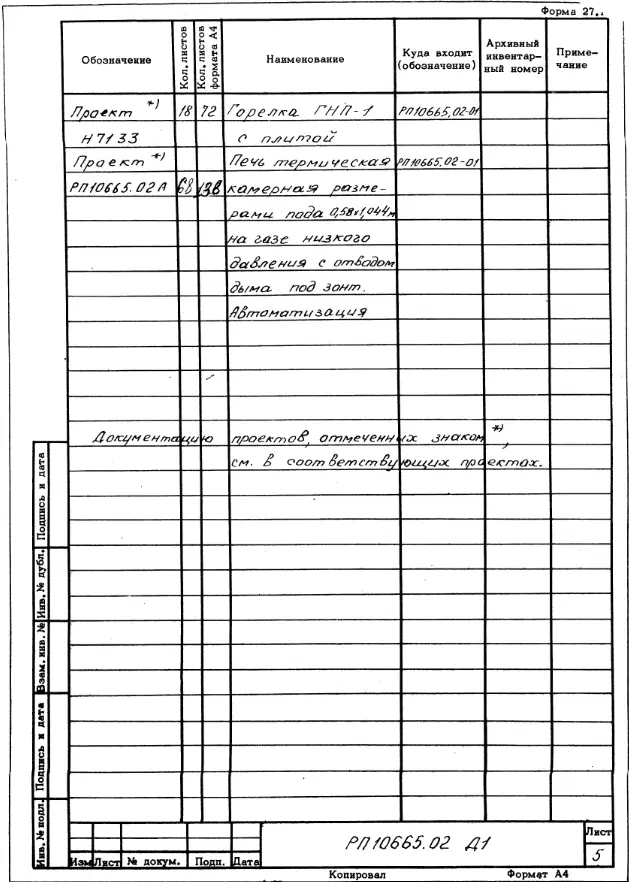 Форма 27.
Обозначение Кол. листов Кол. листов формата А4 Наименование Куда входит (обозначение) Архивный инвентар- ный номер Приме- чание
Проект *) 18 72 Горелка ГНП-1 РП10665.02-01
Н7133 с плитой
Проект *) Печь термическая РП10665.02-01
РП10665.02А 68 138 камерная разме-
рами пода 0,58х1,044м
на газе низкого
давления с отводом
дыма под зонт.
Автоматизация
Документацию проектов, отмеченных знаком *),
см. в соответствующих проектах.
Подпись и дата
Инв. № дубл.
Взам. инв. №
Подпись и дата
Инв. № подл.
РП10665.02 Д1
Лист
5
Изм Лист № докум. Подп. Дата
Копировал Формат А4